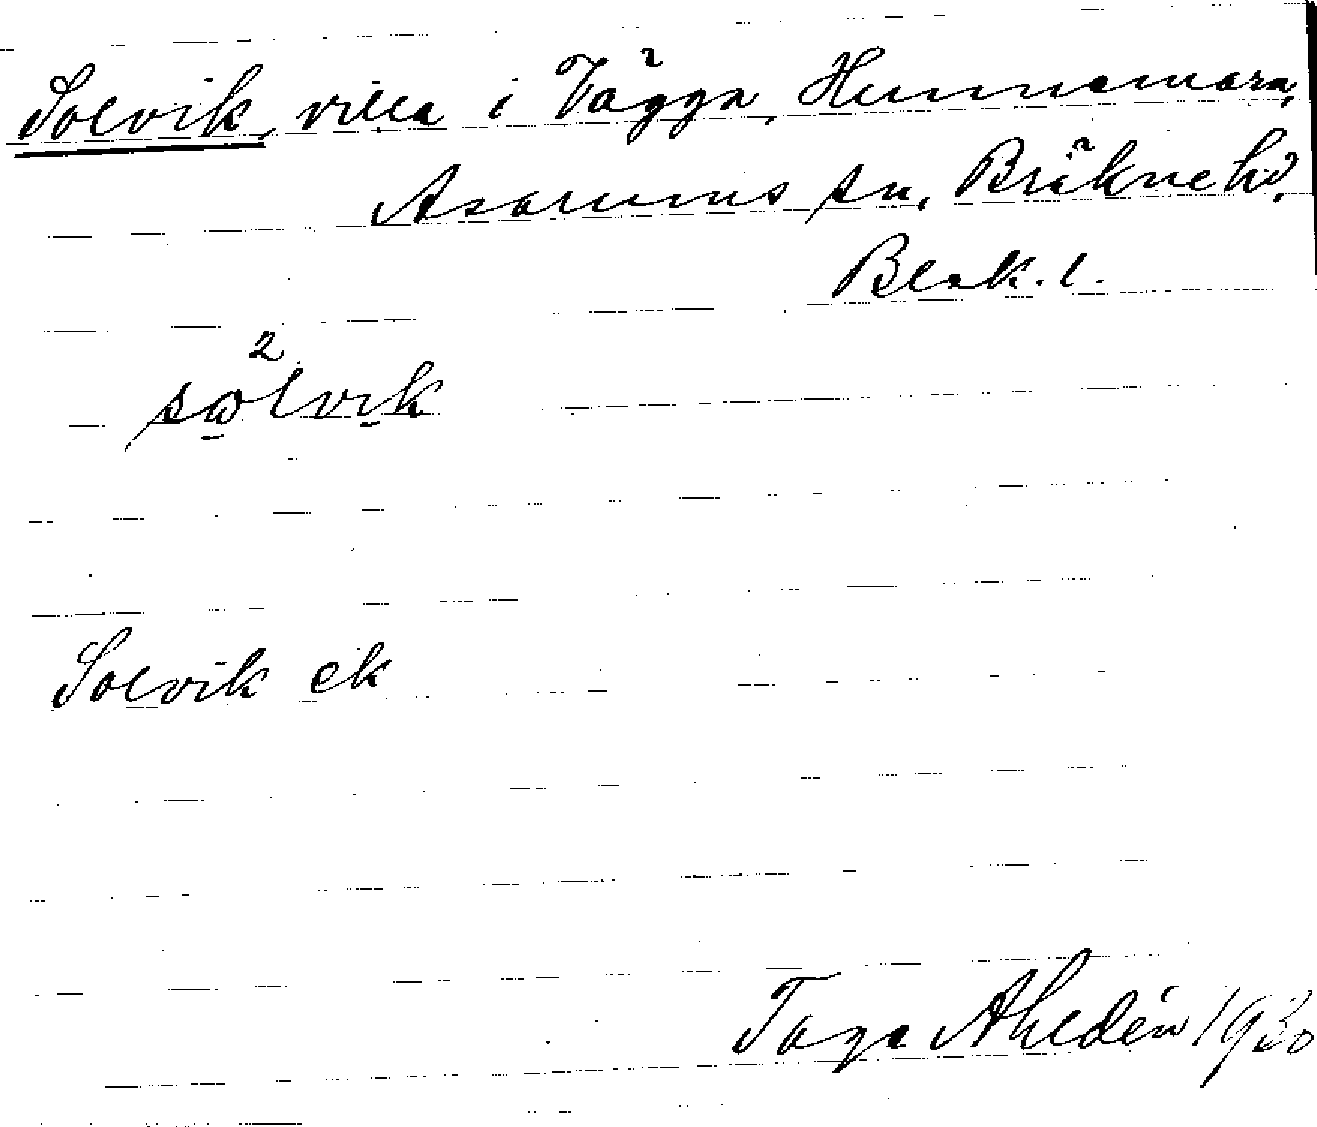 Solvik, villa i Vägga, Hunnamara,
Asarums sn, Bräkne hd,
Blek. l.
2
sωlvik
Solvik ek
Tage Ahldén 1930